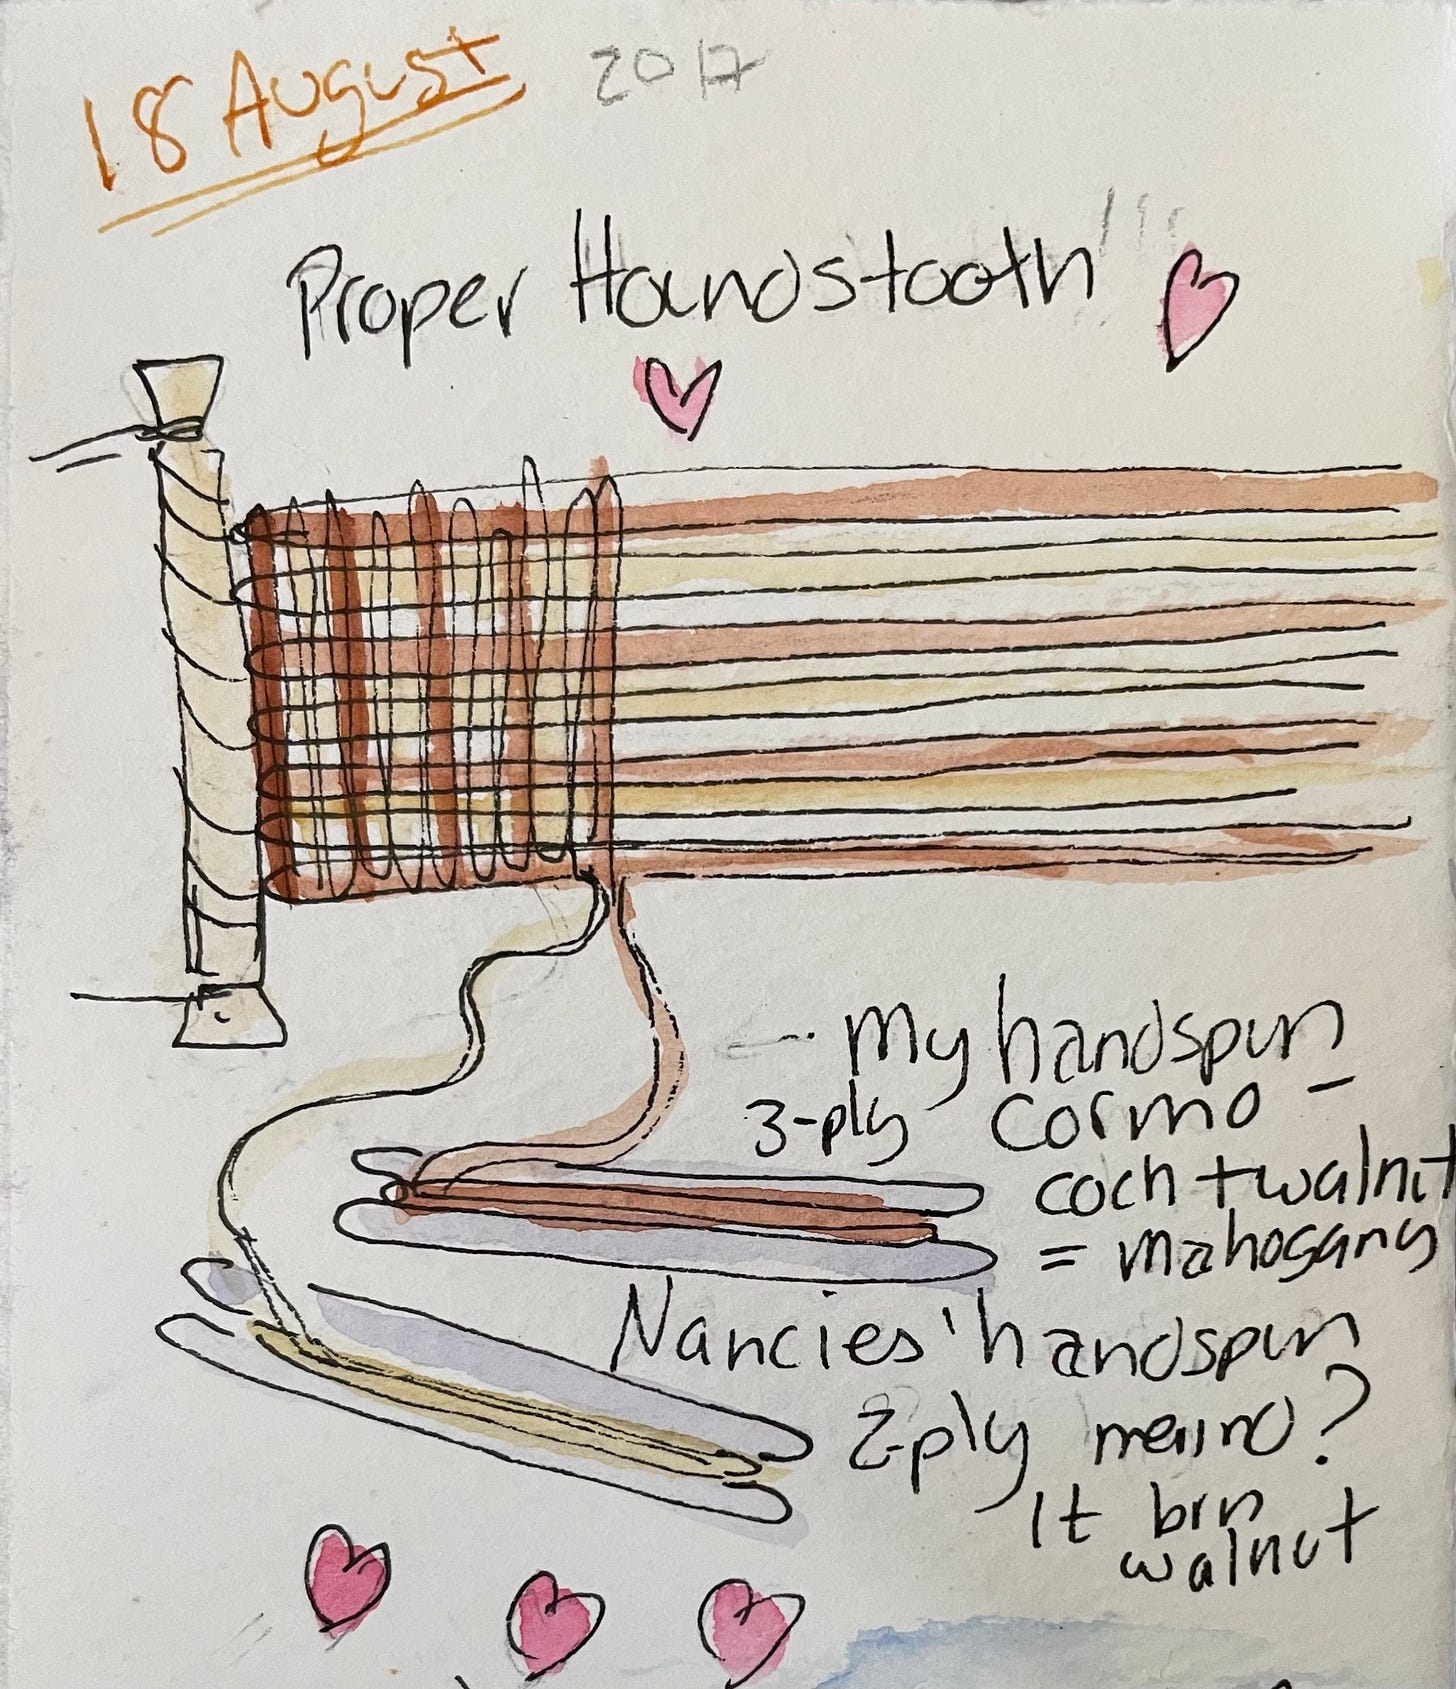 18 August 2017
Proper Houndstooth!!!
My handspun
3-ply cormo -
coch + walnut
= mahogany
Nancies' handspun
2-ply merino?
lt brn
walnut